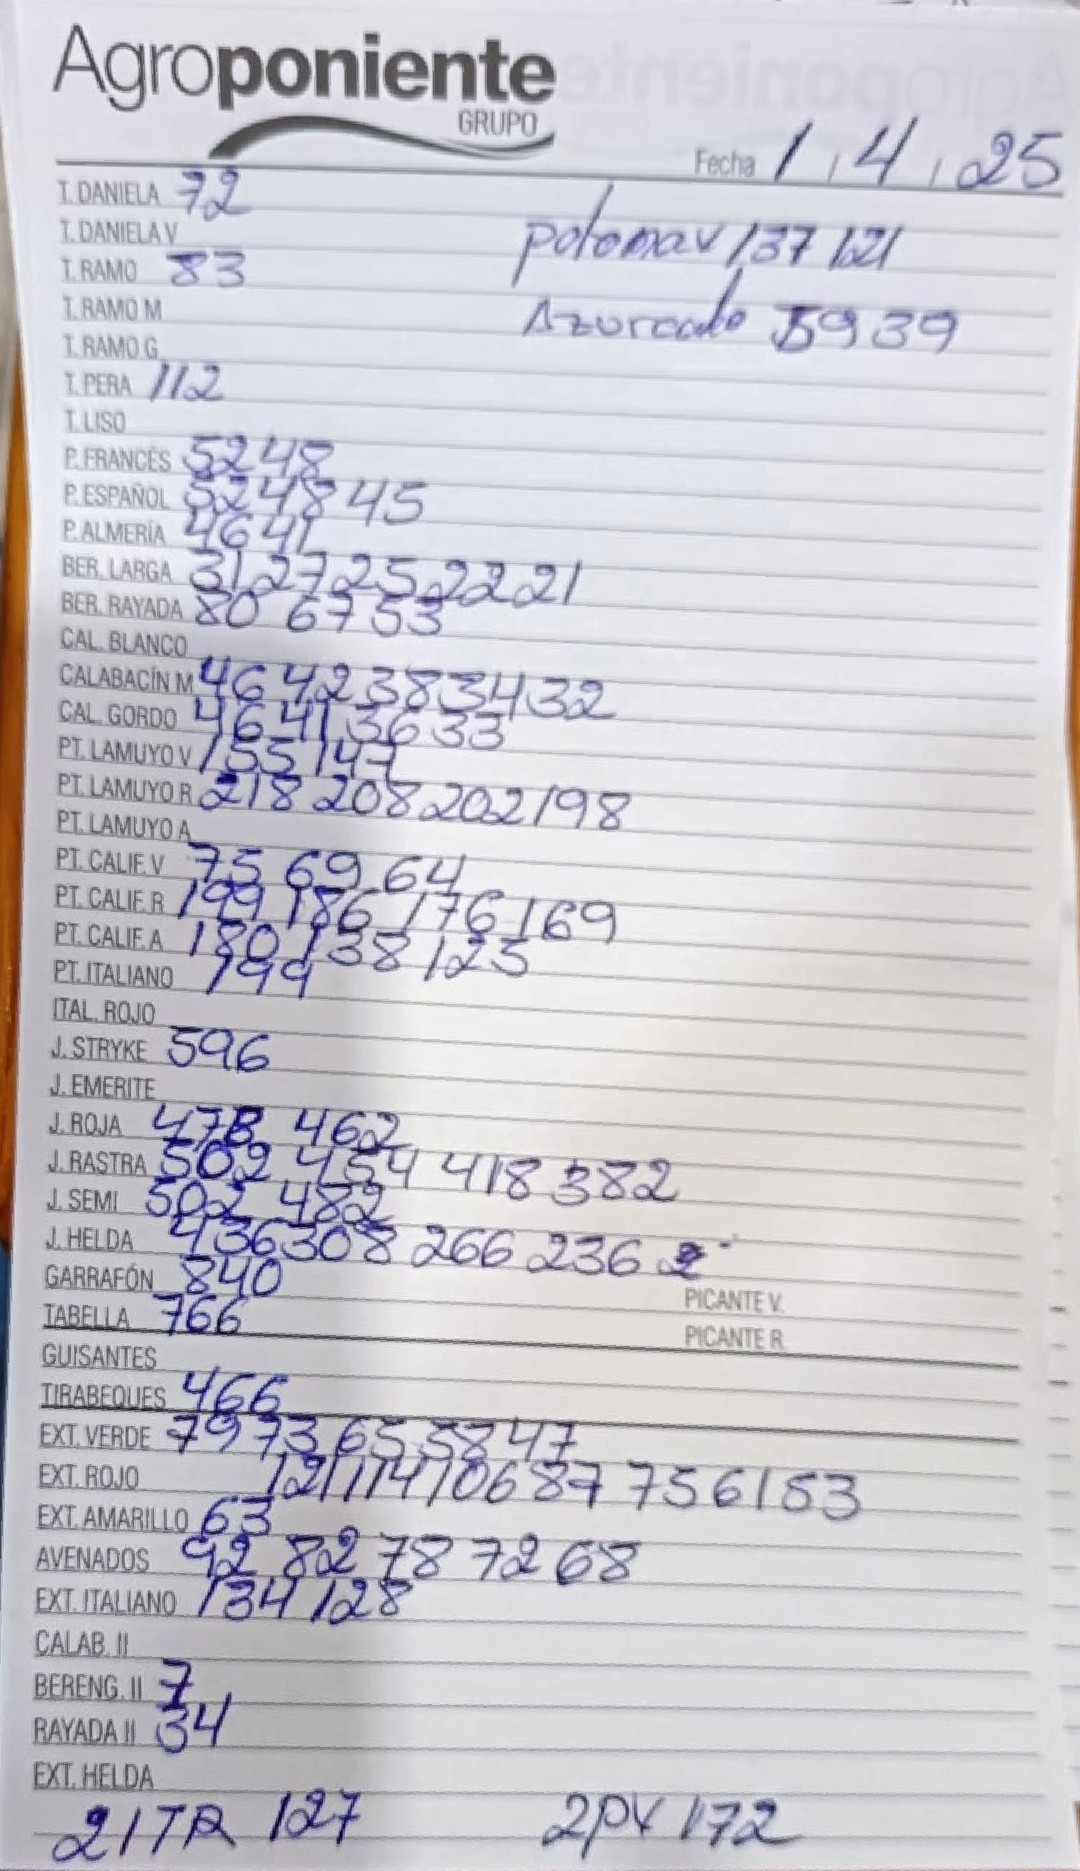 Agroponiente
GRUPO
Fecha 1, 4, 25
T. DANIELA 72
T. DANIELA V
potomav 137 121
T. RAMO 83
T. RAMO M
Azurado 59 39
T. RAMO G
T. PERA 112
T. LISO
P. FRANCÉS 52 48
P. ESPAÑOL 52 48 45
P. ALMERÍA 46 41
BER. LARGA 31 27 25 22 21
BER. RAYADA 80 67 53
CAL. BLANCO
CALABACÍN M 46 42 38 34 32
CAL. GORDO 46 41 36 33
PT. LAMUYO V 155 147
PT. LAMUYO R 218 208 202 198
PT. LAMUYO A
PT. CALIF. V 75 69 64
PT. CALIF. R 199 186 176 169
PT. CALIF. A 180 138 123
PT. ITALIANO 199
ITAL. ROJO
J. STRYKE 596
J. EMERITE
J. ROJA 478 462
J. RASTRA 502 454 418 382
J. SEMI 502 482
J. HELDA 436 308 266 236
GARRAFÓN 840
PICANTE V.
TABELLA 766
PICANTE R.
GUISANTES
TIRABEQUES 466
EXT. VERDE 79 73 65 58 47
EXT. ROJO 121 114 106 87 75 61 53
EXT. AMARILLO 63
AVENADOS 92 82 78 72 68
EXT. ITALIANO 134 128
CALAB. II
BERENG. II 7
RAYADA II 34
EXT. HELDA
2ITR 127 2PV 172